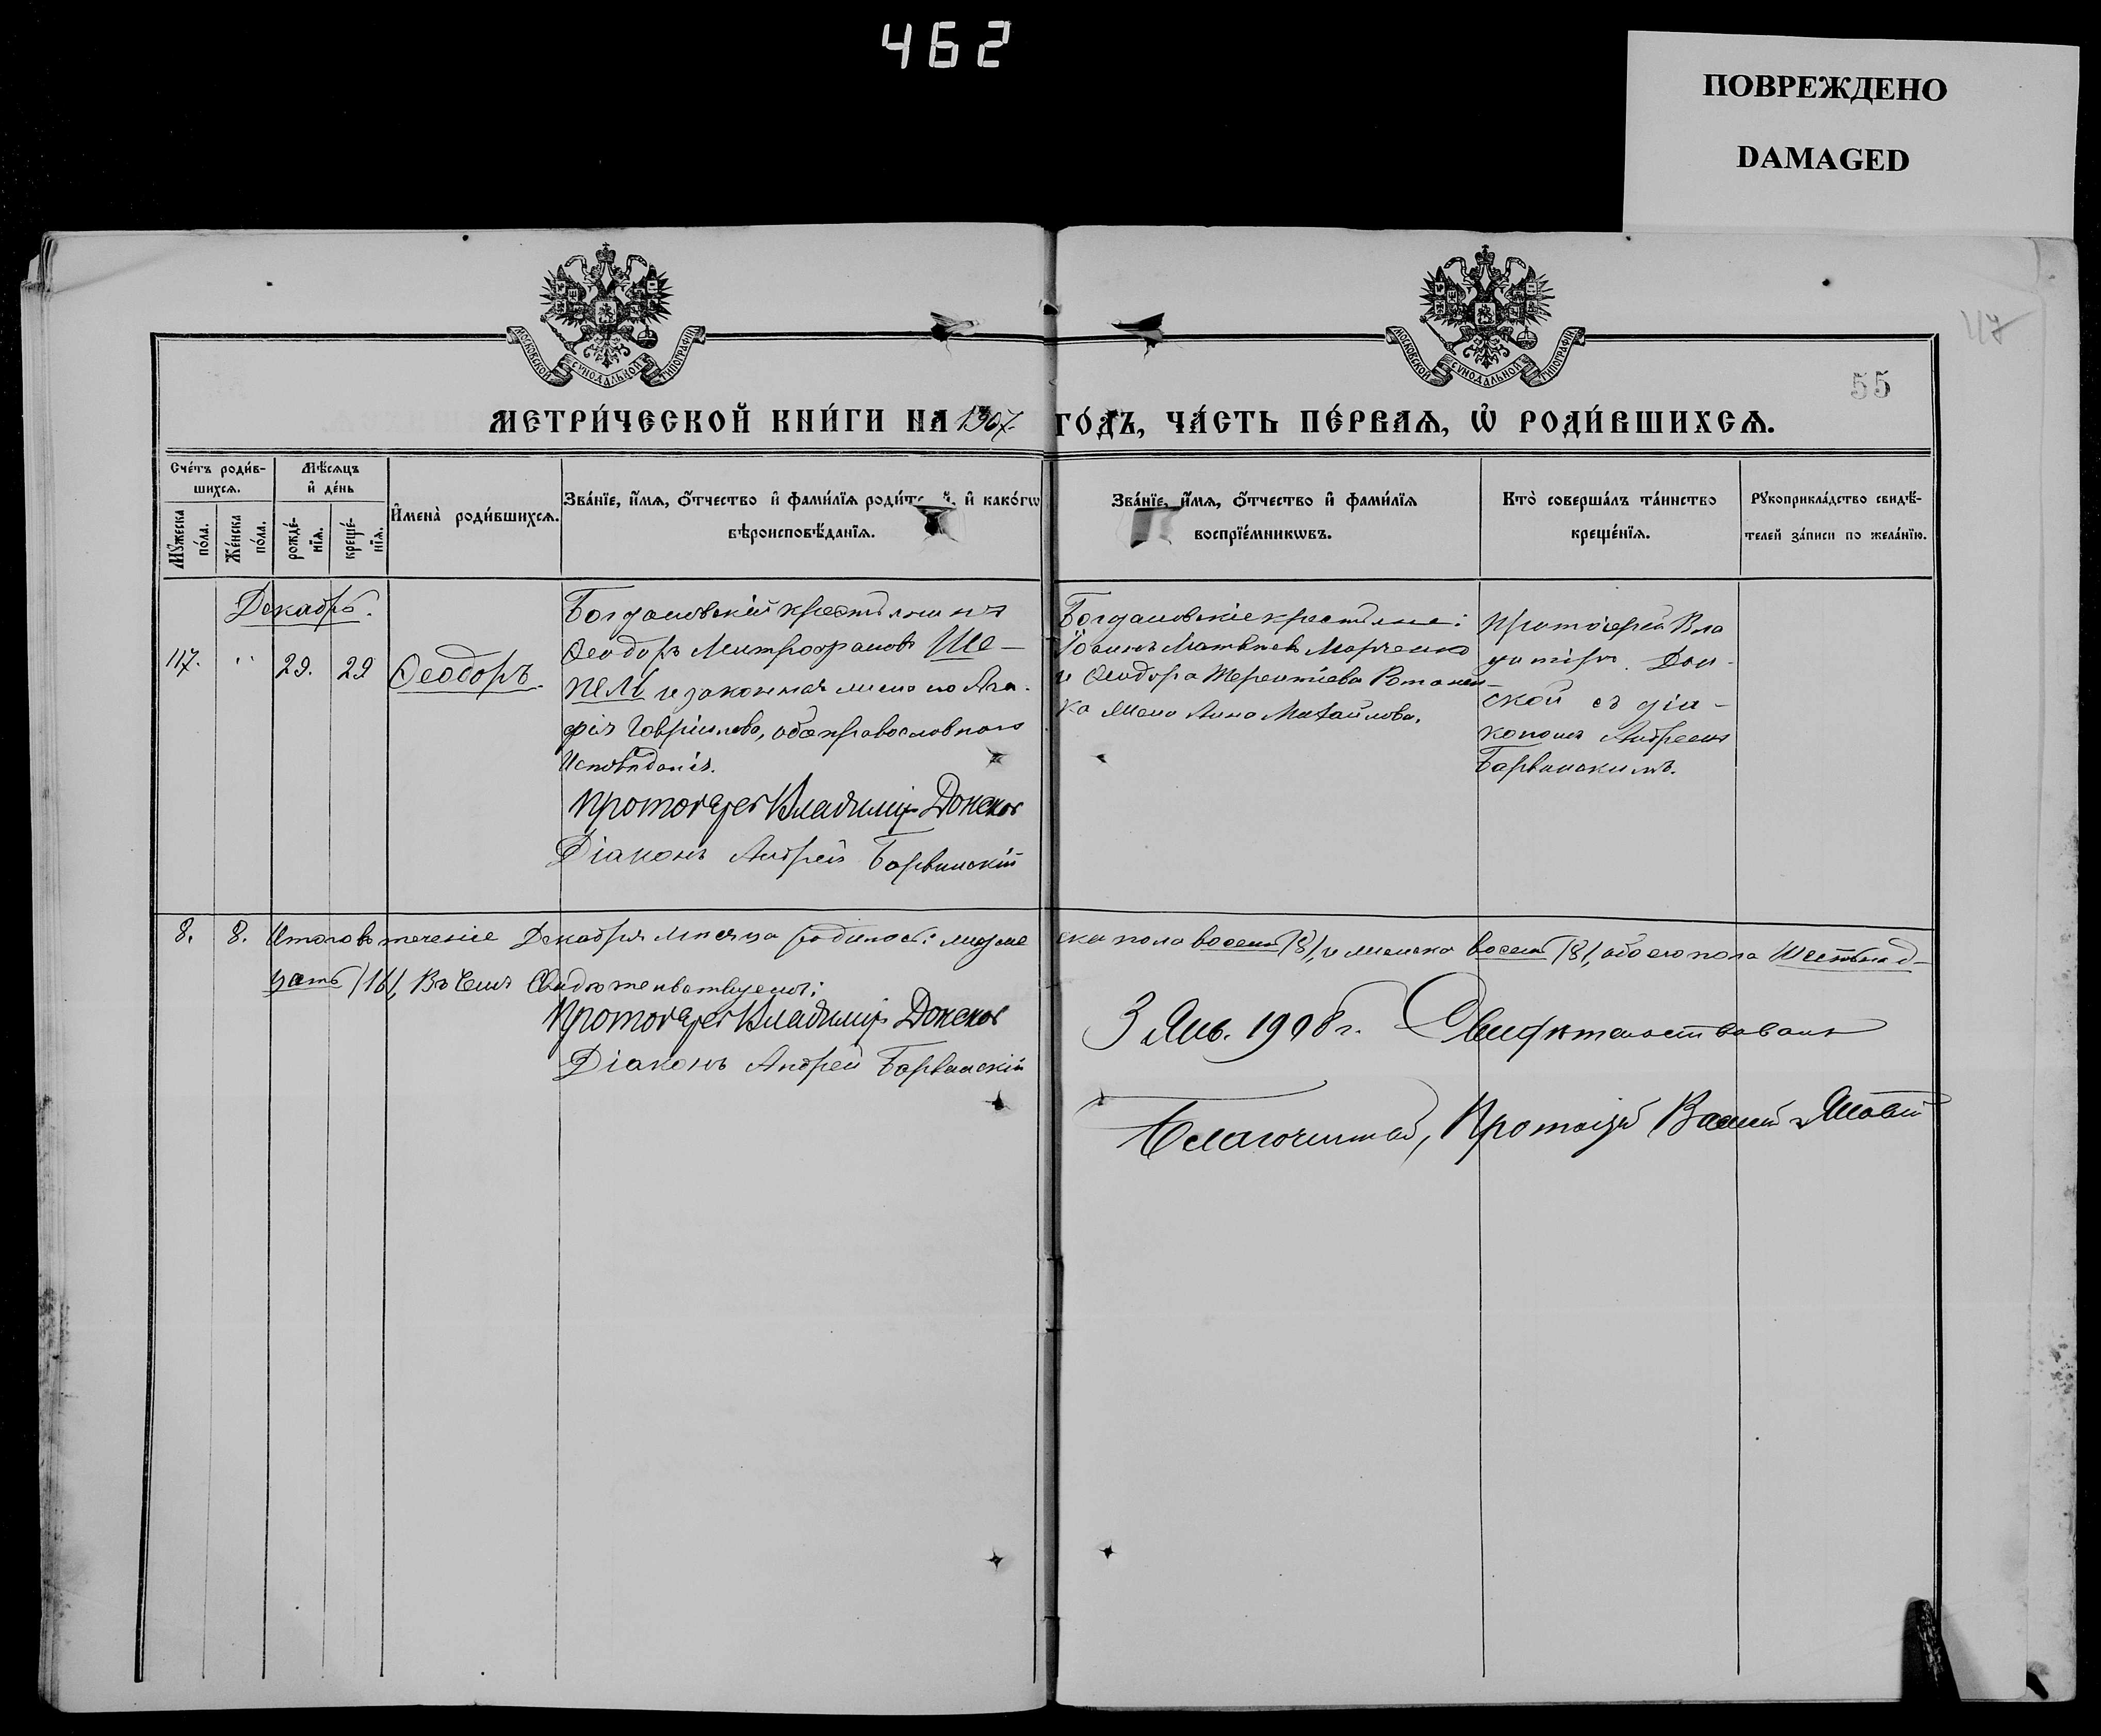 462
ПОВРЕЖДЕНО
DAMAGED
МОСКОВСКОЙ СѴНОДАЛЬНОЙ ТИПОГРАФІИ
МОСКОВСКОЙ СѴНОДАЛЬНОЙ ТИПОГРАФІИ
117
55
МЕТРИ́ЧЕСКОЙ КНИ́ГИ НА 1907. ГО́ДЪ, ЧА́СТЬ ПЕ́РВАѦ, Ѡ҆ РОДИ́ВШИХСѦ.
Сче́тъ роди́в-
шихсѧ.
Мꙋ́жеска
по́ла.
Же́нска
по́ла.
Мѣ́сѧцъ
и҆ де́нь
рожде́-
нїѧ.
креще́-
нїѧ.
И҆мена̀ роди́вшихсѧ.
Зва́нїе, и҆́мѧ, ѻ҆́тчество и҆ фами́лїѧ роди́т й, и҆ како́гѡ
вѣроисповѣ́данїѧ.
Зва́нїе, и҆́мѧ, ѻ҆́тчество и҆ фами́лїѧ
воспрїе́мникѡвъ.
Кто̀ соверша́лъ та́инство
креще́нїѧ.
Рꙋкоприкла́дство свидѣ́-
телей за́писи по жела́нїю.
Декабрь.
117. " 29. 29 Ѳеодоръ.
Богдановскій крестьянинъ
Ѳеодоръ Митрофановъ Ше-
пель и законная жена его Ага-
фія Гавріилова, оба православнаго
Исповѣданія.
Протоіерей Владиміръ Донской
Діаконъ Андрей Барвинскій
Богдановскіе крестьяне:
Іоаннъ Матвѣевъ Марченко
и Ѳеодора Терентіева
ка жена Анна Михайлова.
Протоіерей Вла
диміръ Дон-
ской съ діа-
кономъ Андреемъ
Барвинскимъ.
8. 8. Итого въ теченіе Декабря мѣсяца родилось: мужеска пола восемь /8/, и женска восемь /8/, обоего пола Шестьнад-
цать /16/, Въ чемъ Свидѣтельствуемъ:
Протоіерей Владиміръ Донской
Діаконъ Андрей Барвинскій
3 Янв. 1908 г. Свидѣтельствовалъ
Благочинный, Протоіерей Василій